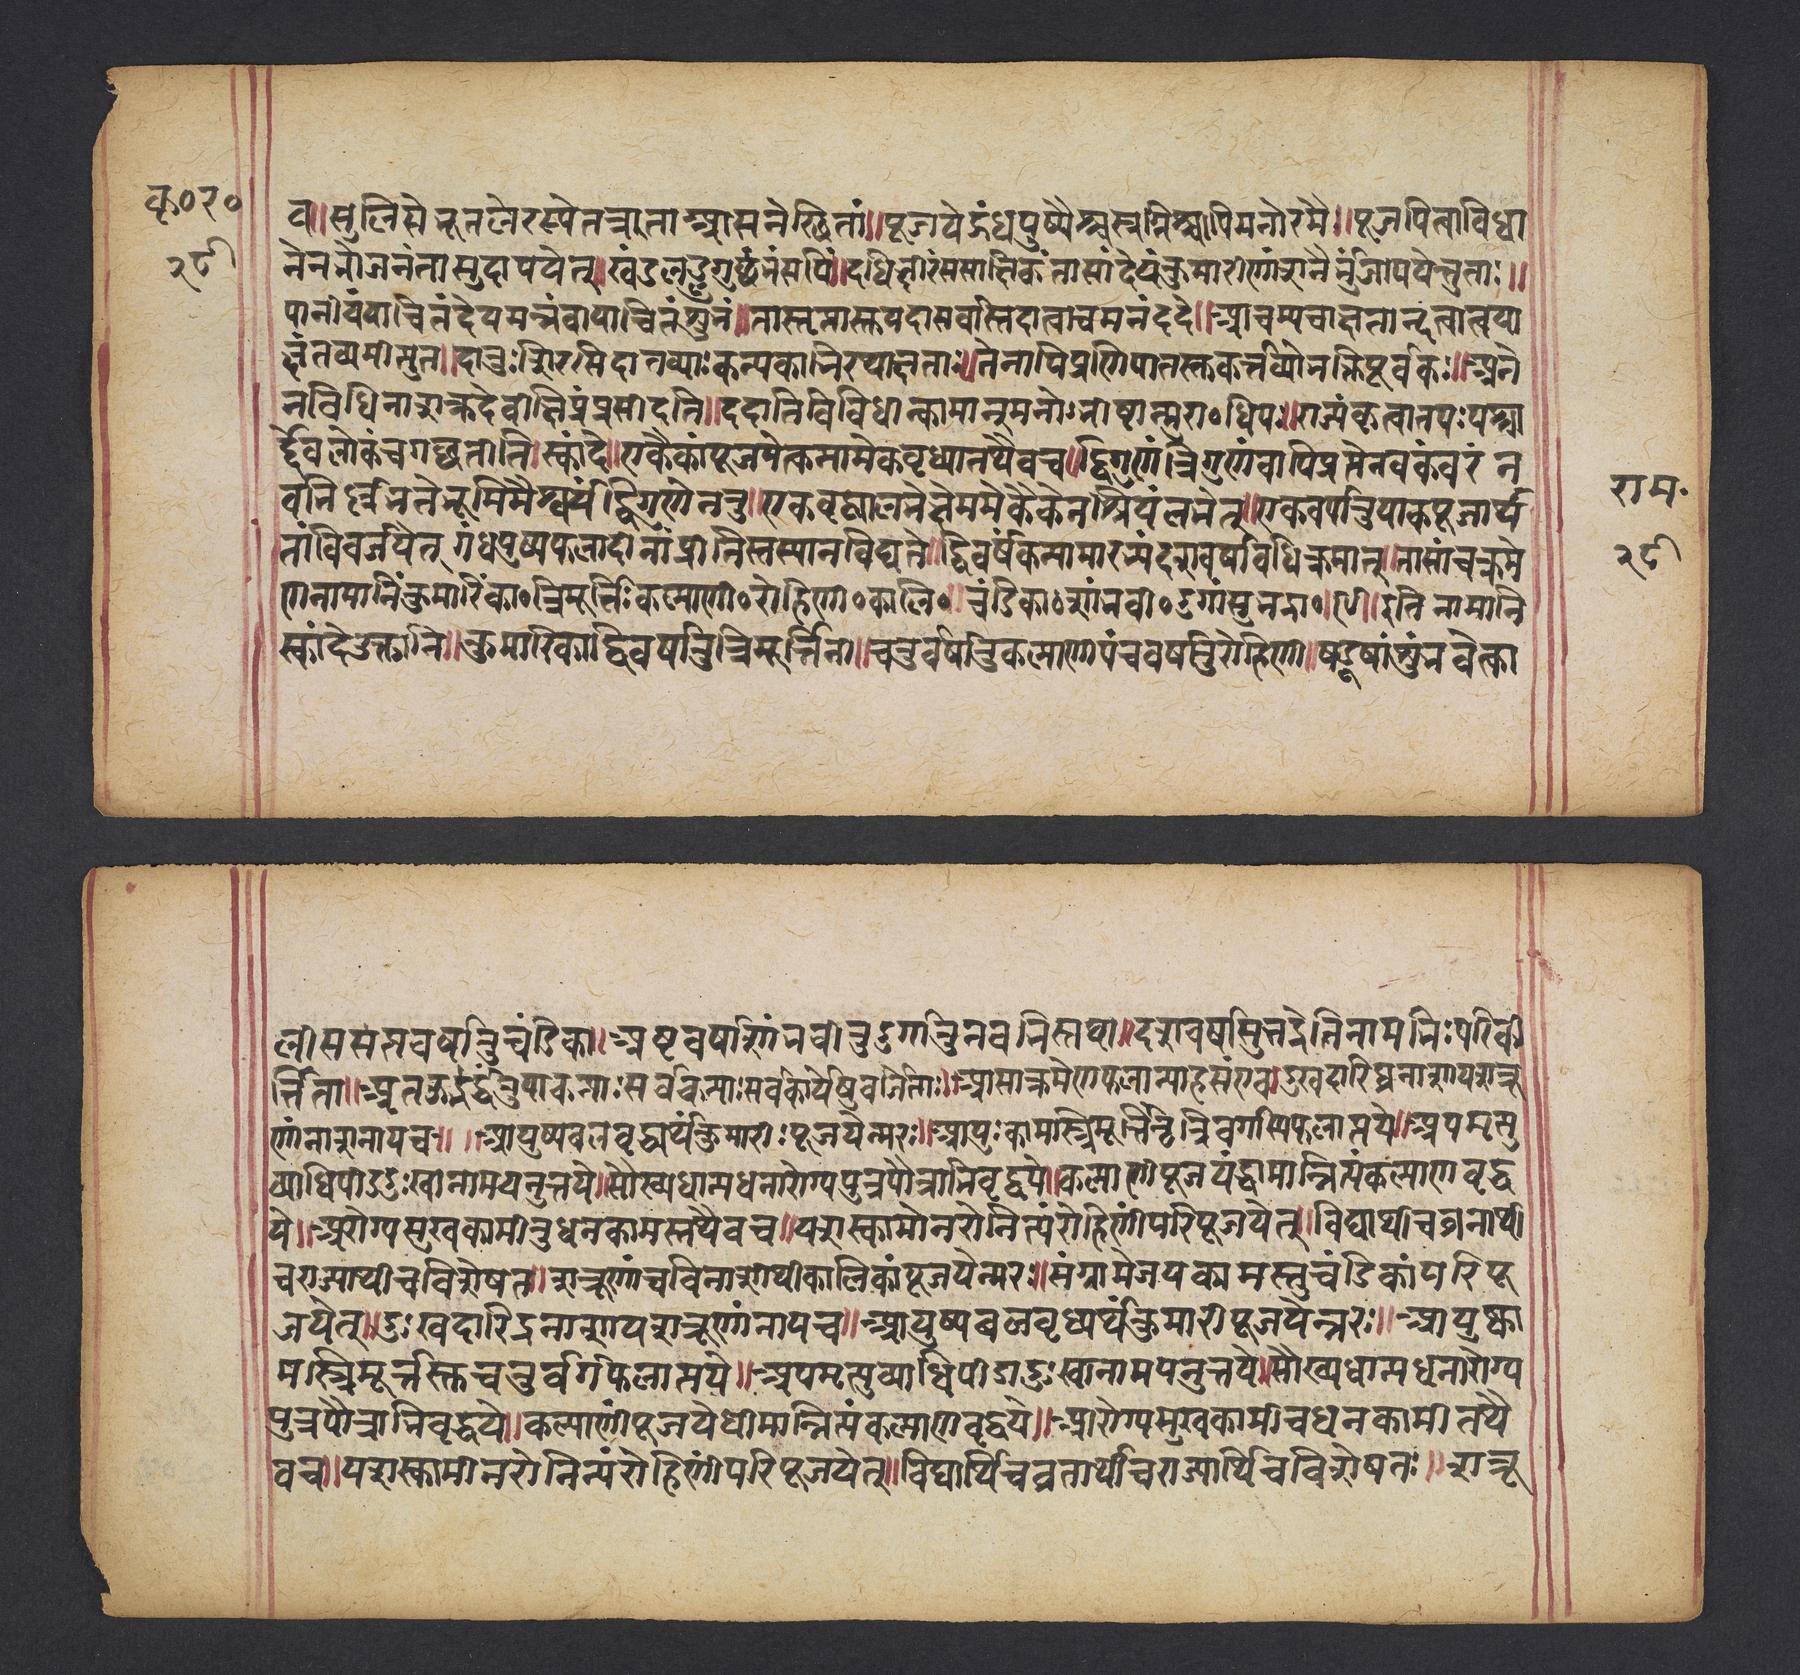 कृ०र०
२८
व॥सुलिप्ते भूतले रम्ये तत्रता आसने स्थितां॥पूजयेद्गंधपुष्पैश्चस्रग्भिश्चापिमनोरमैः॥पूजयित्वाविधा
नेनभोजनंतासुदापयेत्॥खंडलड्डुगुर्डघृनंसर्पि॥दधिक्षीरंससात्तिकंतासांदेयंकुमारीणांशनैर्भुंजापयेत्तुताः॥
पानीयंयाचितंदेयमन्नंवायाचितंशुभं॥तास्तृप्तास्तुयदासर्वास्तदात्वाचमनंददे॥आचम्यचाक्षतान्दत्वात्वया
क्षंतव्यमीत्युत॥दातुःशिरसिदातव्याःकन्यकाभिरथाक्षताः॥तेनापिप्रणिपातस्तुकर्त्तव्योभक्तिपूर्वकः॥अने
नविधिनाशक्रदेवीक्षिप्रंप्रसीदति॥ददातिविविधान्कामान्मनोऽभीष्टान्सुरा०धिप॥राज्यंकृत्वातपःपश्चा
र्द्देवलोकंचगच्छतीति॥स्कांदे॥एकैकांपूजयेत्कन्यामेकवृध्यातथैवच॥द्विगुणंत्रिगुणंवापिप्रत्येनवकंवरं न
वभिर्लभतेभूमिमैश्वर्यंद्विगुणेनतु॥एकवृद्ध्यालभेत्क्षेममेकैकेनश्रियंलभेत्॥एकवर्षातुयाकन्यापूजार्थे
तांविवर्जयेत् गंधपुष्पफलादीनांप्रीतिस्तस्यानविद्यते॥द्विवर्षकन्यामारभ्यदशवर्षावधिक्रमात्॥तासांचक्रमे
णनामानिकुमारिका०त्रिमूर्त्तिःकल्याणी०रोहिणी०कालि०॥चंडिका०शांभवी०दुर्गासुभद्रा०॥९॥इतिनामानि
स्कांदेउक्तानि॥कुमारिकाद्विवर्षातुत्रिमूर्त्तिनी॥चतुर्वर्षातुकल्याणपंचवर्षातुरोहिणी॥षड्वर्षांतुभवेत्का
राम·
२८
लीसप्तसप्तवर्षातुचंडिका॥अष्टवर्षाशांभवीतुदुर्गातुनवभिस्तथा॥दशवर्षासुभद्रेतिनामभिःपरिकी
र्त्तिता॥अतऊर्द्ध्वंतुयाकन्याःसर्वकन्याःसर्वकार्येषुवर्जिताः॥आसांक्रमेणफलान्याहसंएव॥दुखदारिध्र्यनाशायशत्रू
णांनाशनायच॥ ॥आयुष्यबलवृद्ध्यर्थंकुमारीःपूजयेन्नरः॥आयुःकामस्त्रिमूर्त्तिंतुत्रिवर्गस्यफलाप्तये॥अपमृत्यु
व्याधिपीडादुःखानामपनुत्तये॥सौख्यधान्यधनारोग्यपुत्रपौत्राभिवृद्धये॥कल्याणीपूजयेद्धीमान्नित्यंकल्याणवृद्ध
ये॥आरोग्यसुखकामीतुधनकामस्तथैवच॥यशस्कामोनरोनित्यंरोहिणींपरिपूजयेत्॥विद्यार्थीचव्रतार्थी
चराज्यार्थीचविशेषत॥शत्रूणांचविनाशार्थीकालिकांपूजयेन्नरः॥संग्रामेजयकामस्तुचंडिकांपरिपू
जयेत्॥दुःखदारिद्रनाशायशत्रूणांनायच॥आयुष्यबलवृध्यर्थंकुमारीपूजयेन्नरः॥आयुष्का
मस्त्रिमूर्त्तस्तुचतुर्वर्गफलाप्तये॥अपमृत्युव्याधिपीडादुःखानामपनुत्तये॥सौख्यधान्यधनारोग्य
पुत्रपौत्राभिवृद्धये॥कल्याणींपूजयेधीमान्नित्यंकल्याणवृद्धये॥आरोग्यसुखकामीचधनकामीतथै
वच॥यशस्कामीनरोनित्यंरोहिणींपरिपूजयेत्॥विद्यार्थिचव्रतार्थीचराज्यार्थिचविशेषतः॥शत्रू